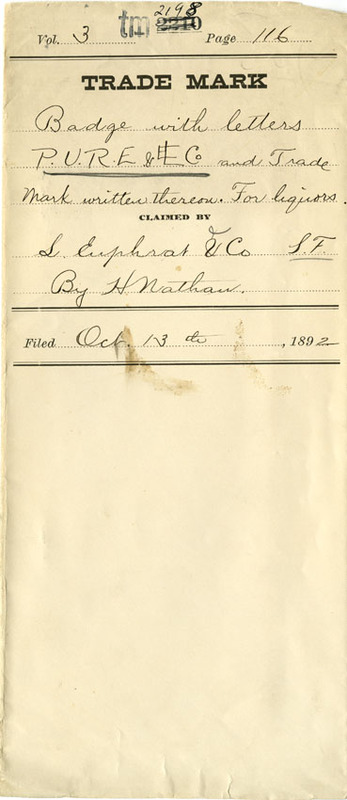 2198
Vol. 3 tm 2210 Page 116
TRADE MARK
Badge with letters
P.U.R.E & E Co and Trade
Mark written thereon. For liquors.
CLAIMED BY
L. Euphrat & Co S.F.
By H Nathan.
Filed Oct. 13th, 1892